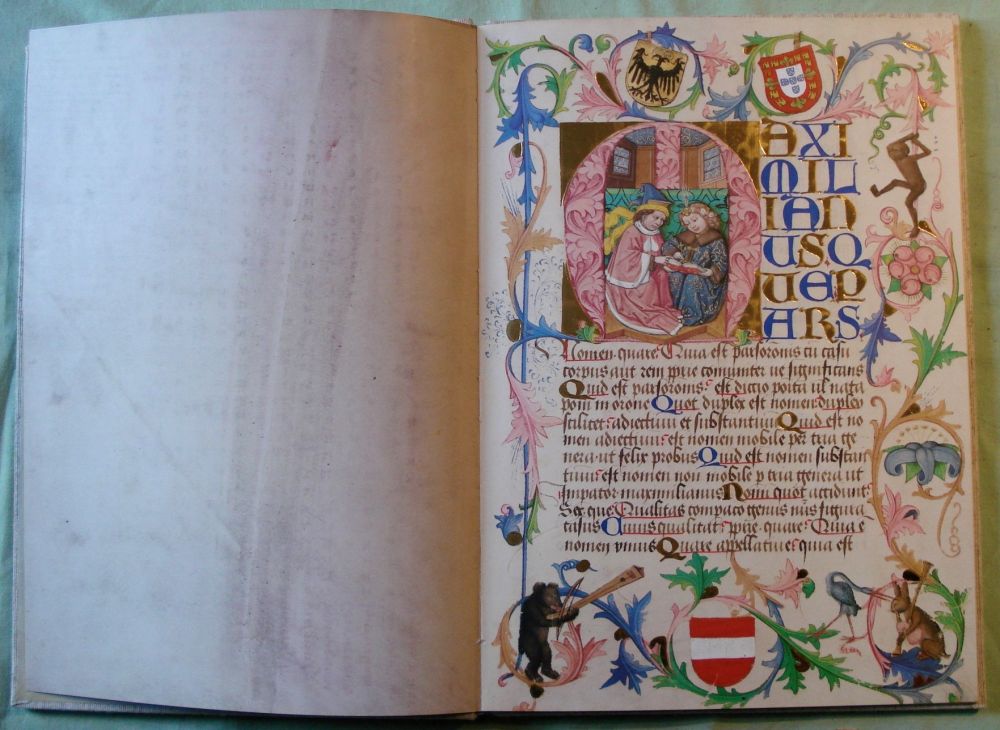 M AXI
MIL
IAN
US. Q
UE P
ARS
Nomen. quare Quia est pars oronis cu casu
corpus aut rem comuniter ve significans
Quid est pars oronis: est dictio posita vl nata
poni in orone Quot duplex est nomen: duplex
scilicet: adiectiuu et substantiuu Quid est no
men adiectiuu: est nomen mobile per tria ge
nera. ut felix probus Quid est nomen substan
tiuu: est nomen non mobile p tria genera ut
Impator maximilianus Nomi quot accidunt:
Sex que Qualitas compaco genus nus figura
casus Cuius qualitat: quare: Quia e
nomen vnius Quare appellatiue: quia est